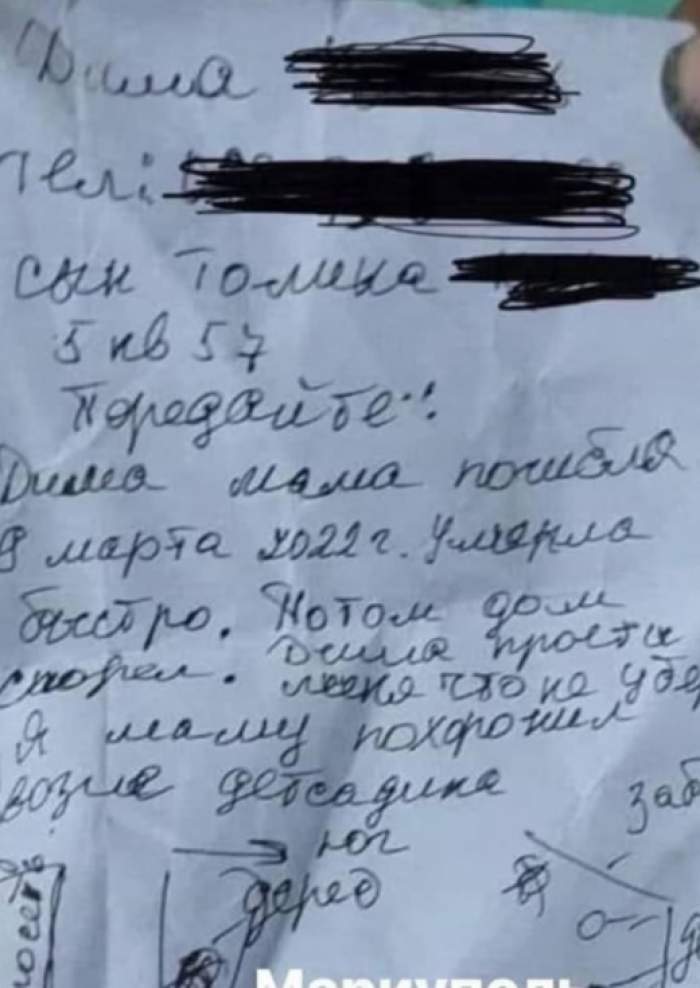 Дима
Тел:
сын Толика
5 кв 57
Передайте!
Дима мама погибла
9 марта 2022 г. Умерла
быстро. Потом дом
сгорел. Дима прости
меня что не убе
Я маму похоронил
возле детсадика
заб
юг
дерев
Мариуполь